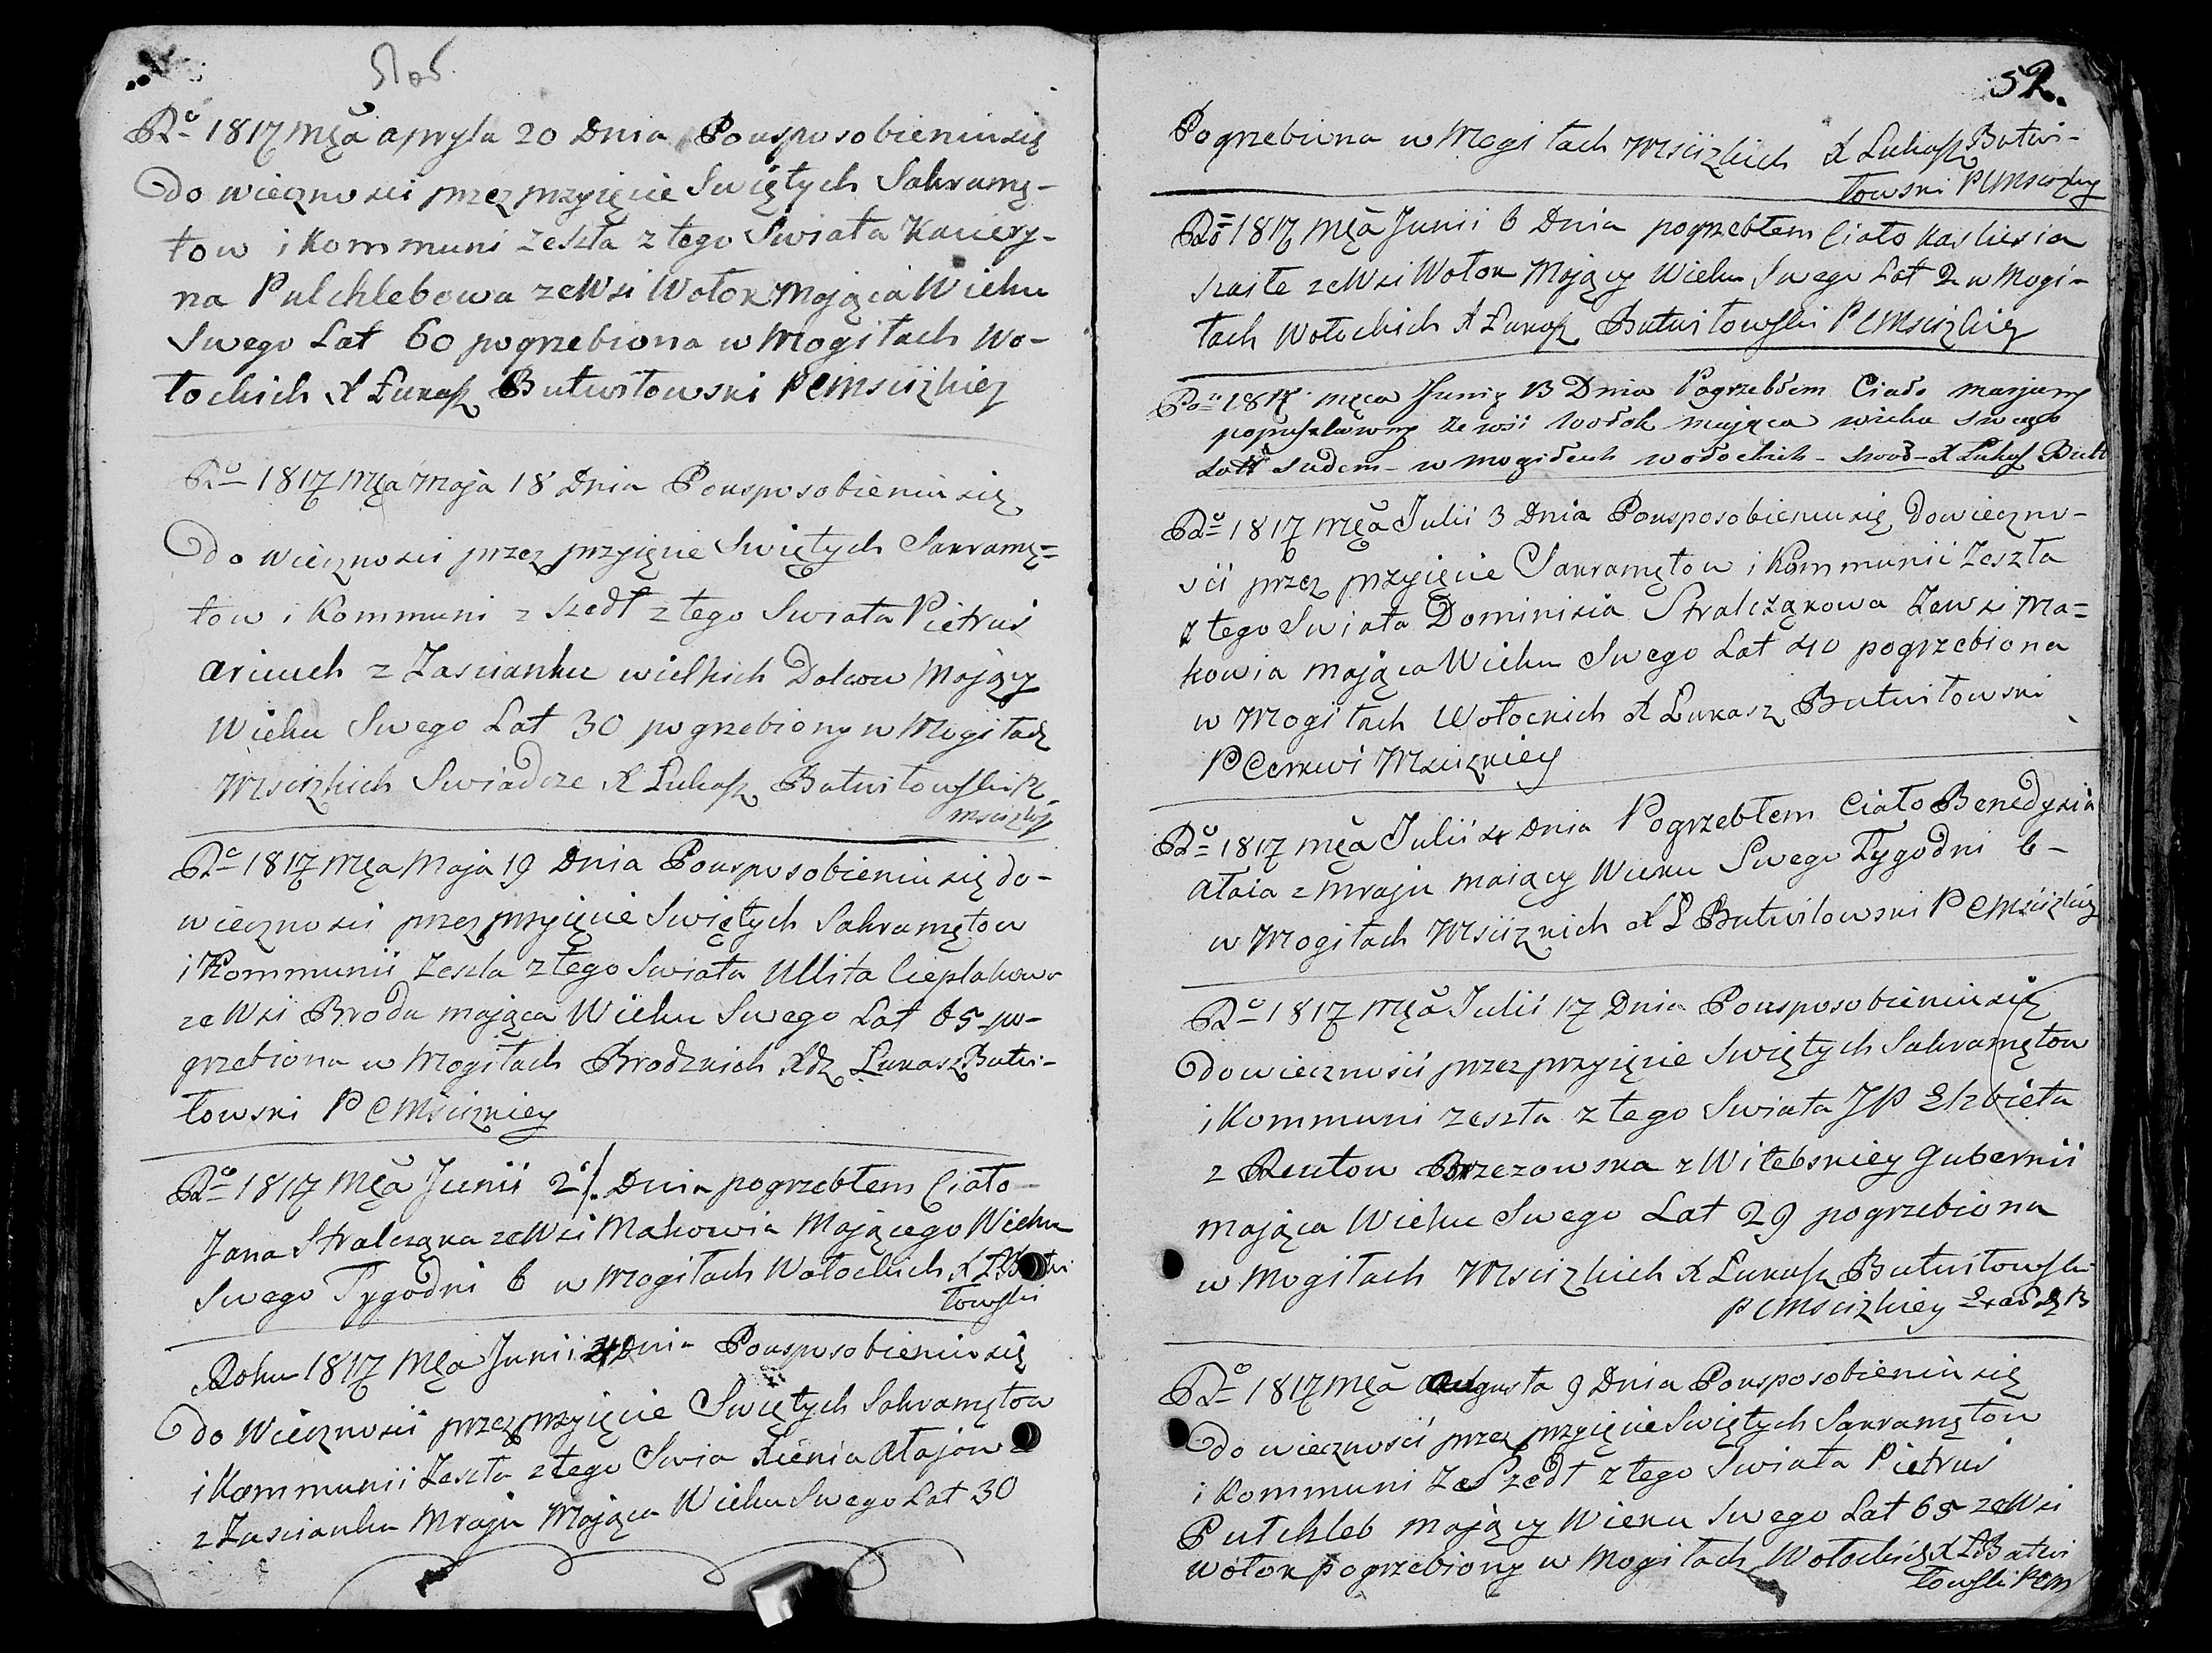 51 об.
Rº 1817 Mca apryla 20 Dnia Pousposobieniu się
Do wieczności przez przyięcie Swiętych Sakramę-
tow i Kommuni zeszła z tego Swiata Kaciery-
na Pulchlebowa ze Wsi Wołok Mająca Wieku
Swego Lat 60 pogrzebiona w Mogiłach Wo-
łockich X Łukasz Butwiłowski P C Mscizkiey
Rº 1817 Mca Maja 18 Dnia Pousposobieniu się
Do Wieczności przez przyięcie Swiętych Sakramę=
tow i Kommuni z szedł z tego Swiata Pietruś
z Zascianku wielkich Dolcow Mający
Wieku Swego Lat 30 pogrzebiony w Mogiłach
Mscizkich Swiadcze X Łukasz Butwiłowski P C
Mscizkiey
Rº 1817 Mca Maja 19 Dnia Pousposobieniu się do-
wieczności przez przyięcie Swiętych Sakramętow
i Kommunii Zeszła z tego Swiata Ullita Cieplakowa
ze Wsi Brodu mająca Wieku Swego Lat 65 po-
grzebiona w Mogiłach Brodzkich Xdz Łukasz Butwi-
łowski P C Mscizkiey
Rº 1817 Mca Junii 2 Dnia pogrzebłem Ciało
Jana Stralcząka ze Wsi Makowia Mającego Wieku
Swego Tygodni 6 w Mogiłach Wołockich X Ł Butwi
łowski
Roku 1817 Mca Junii 4 Dnia Pousposobieniu się
Do Wieczności przez przyięcie Swiętych Sakramętow
i Kommunii Zeszła z tego Swia Xienia Ałajow
z Zascianku Mraju Mająca Wieku Swego Lat 30
52.
Pogrzebiona w Mogiłach Mscizkich X Łukasz Butwi-
łowski P C Mscizkiey
Rº 1817 Mca Junii 6 Dnia pogrzebłem Ciało
ze Wsi Wołok Mający Wieku Swego Lat 2 w Mogi-
łach Wołockich X Łukasz Butwiłowski P C Mscizkiey
Roº 1817 męca Junii 13 Dnia Pogrzebłem Ciało marjany
ze wsi wołok mająca wieku swego
Lat siedem w mogiłach wołockich X Łukasz But
Rº 1817 Mca Julii 3 Dnia Pousposobieniu się do wieczno-
sci przez przyięcie Sakramętow i Kommunii Zeszła
z tego Swiata Dominisia Stralcząkowa Ze wsi Ma=
kowia mająca Wieku Swego Lat 40 pogrzebiona
w Mogiłach Wołockich X Łukasz Butwiłowski
P Cerkwi Mscizkiey
Rº 1817 Mca Julii 4 Dnia Pogrzebłem Ciało Benedyxia
Ałaia z Mraju maiący Wieku Swego Tygodni 6 -
w Mogiłach Mscizkich X Ł Butwiłowski P C Mscizkiey
Rº 1817 Mca Julii 17 Dnia Pousposobieniu się
Do wieczności przez przyięcie Swiętych Sakramętow
i Kommuni zeszła z tego Swiata JP Elzbieta
z Reutow Brzezowska z Witebskiey Gubernii
mająca Wieku Swego Lat 29 pogrzebiona
w Mogiłach Mscizkich X Łukasz Butwiłowski
P C Mscizkiey
Rº 1817 Mca Augusta 9 Dnia Pousposobieniu się
Do wieczności przez przyięcie Swiętych Sakramętow
i Kommuni Zeszedł z tego Swiata Pietruś
Pulchleb mający Wieku Swego Lat 65 ze Wsi
wołok pogrzebiony w Mogiłach Wołockich X Ł Butwi
łowski P C M